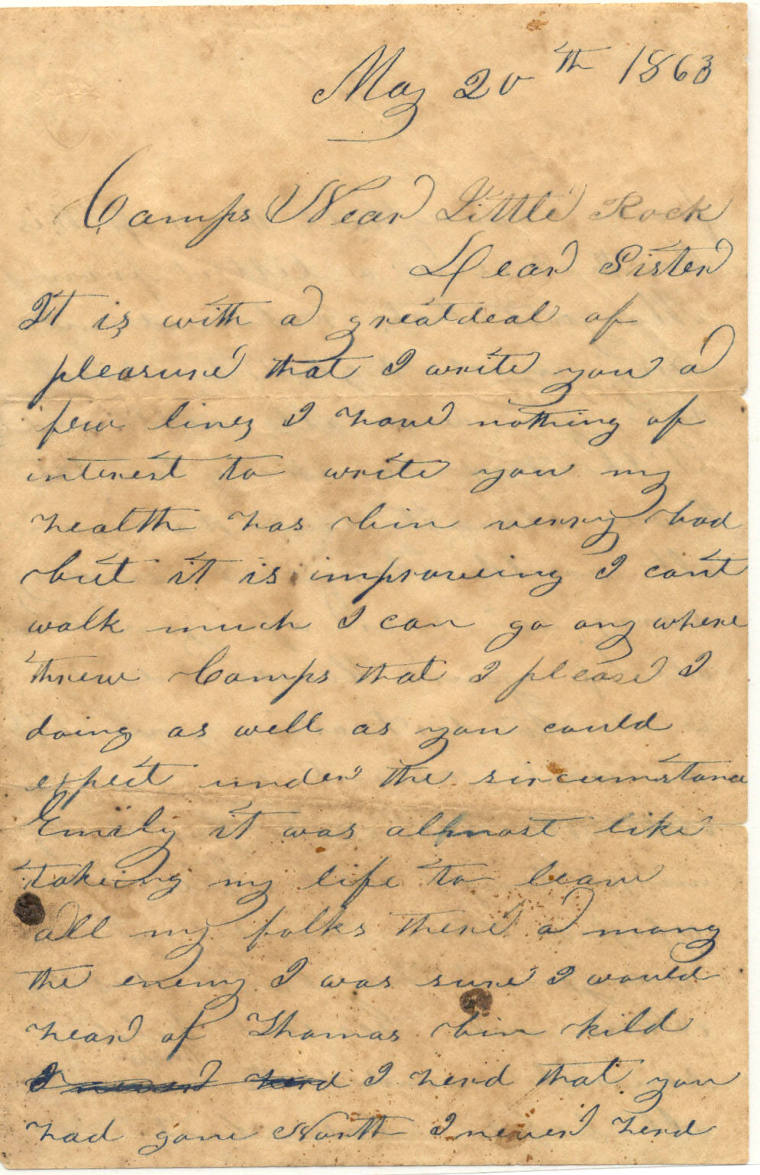 May 20th 1863
Camps Near Little Rock
Dear Sister
It is with a greatdeal of
pleasure that I write you a
few lines I have nothing of
interest to write you my
health has bin verry bad
but it is improveing I cant
walk much I can go any where
threw Camps that I please I
doing as well as you could
expect under the sircumstance
Emily it was allmost like
takeing my life to leave
all my folks there a mong
the enemy I was sure I would
hear of Thomas bin kild
I never herd I herd that you
had gone North I never herd